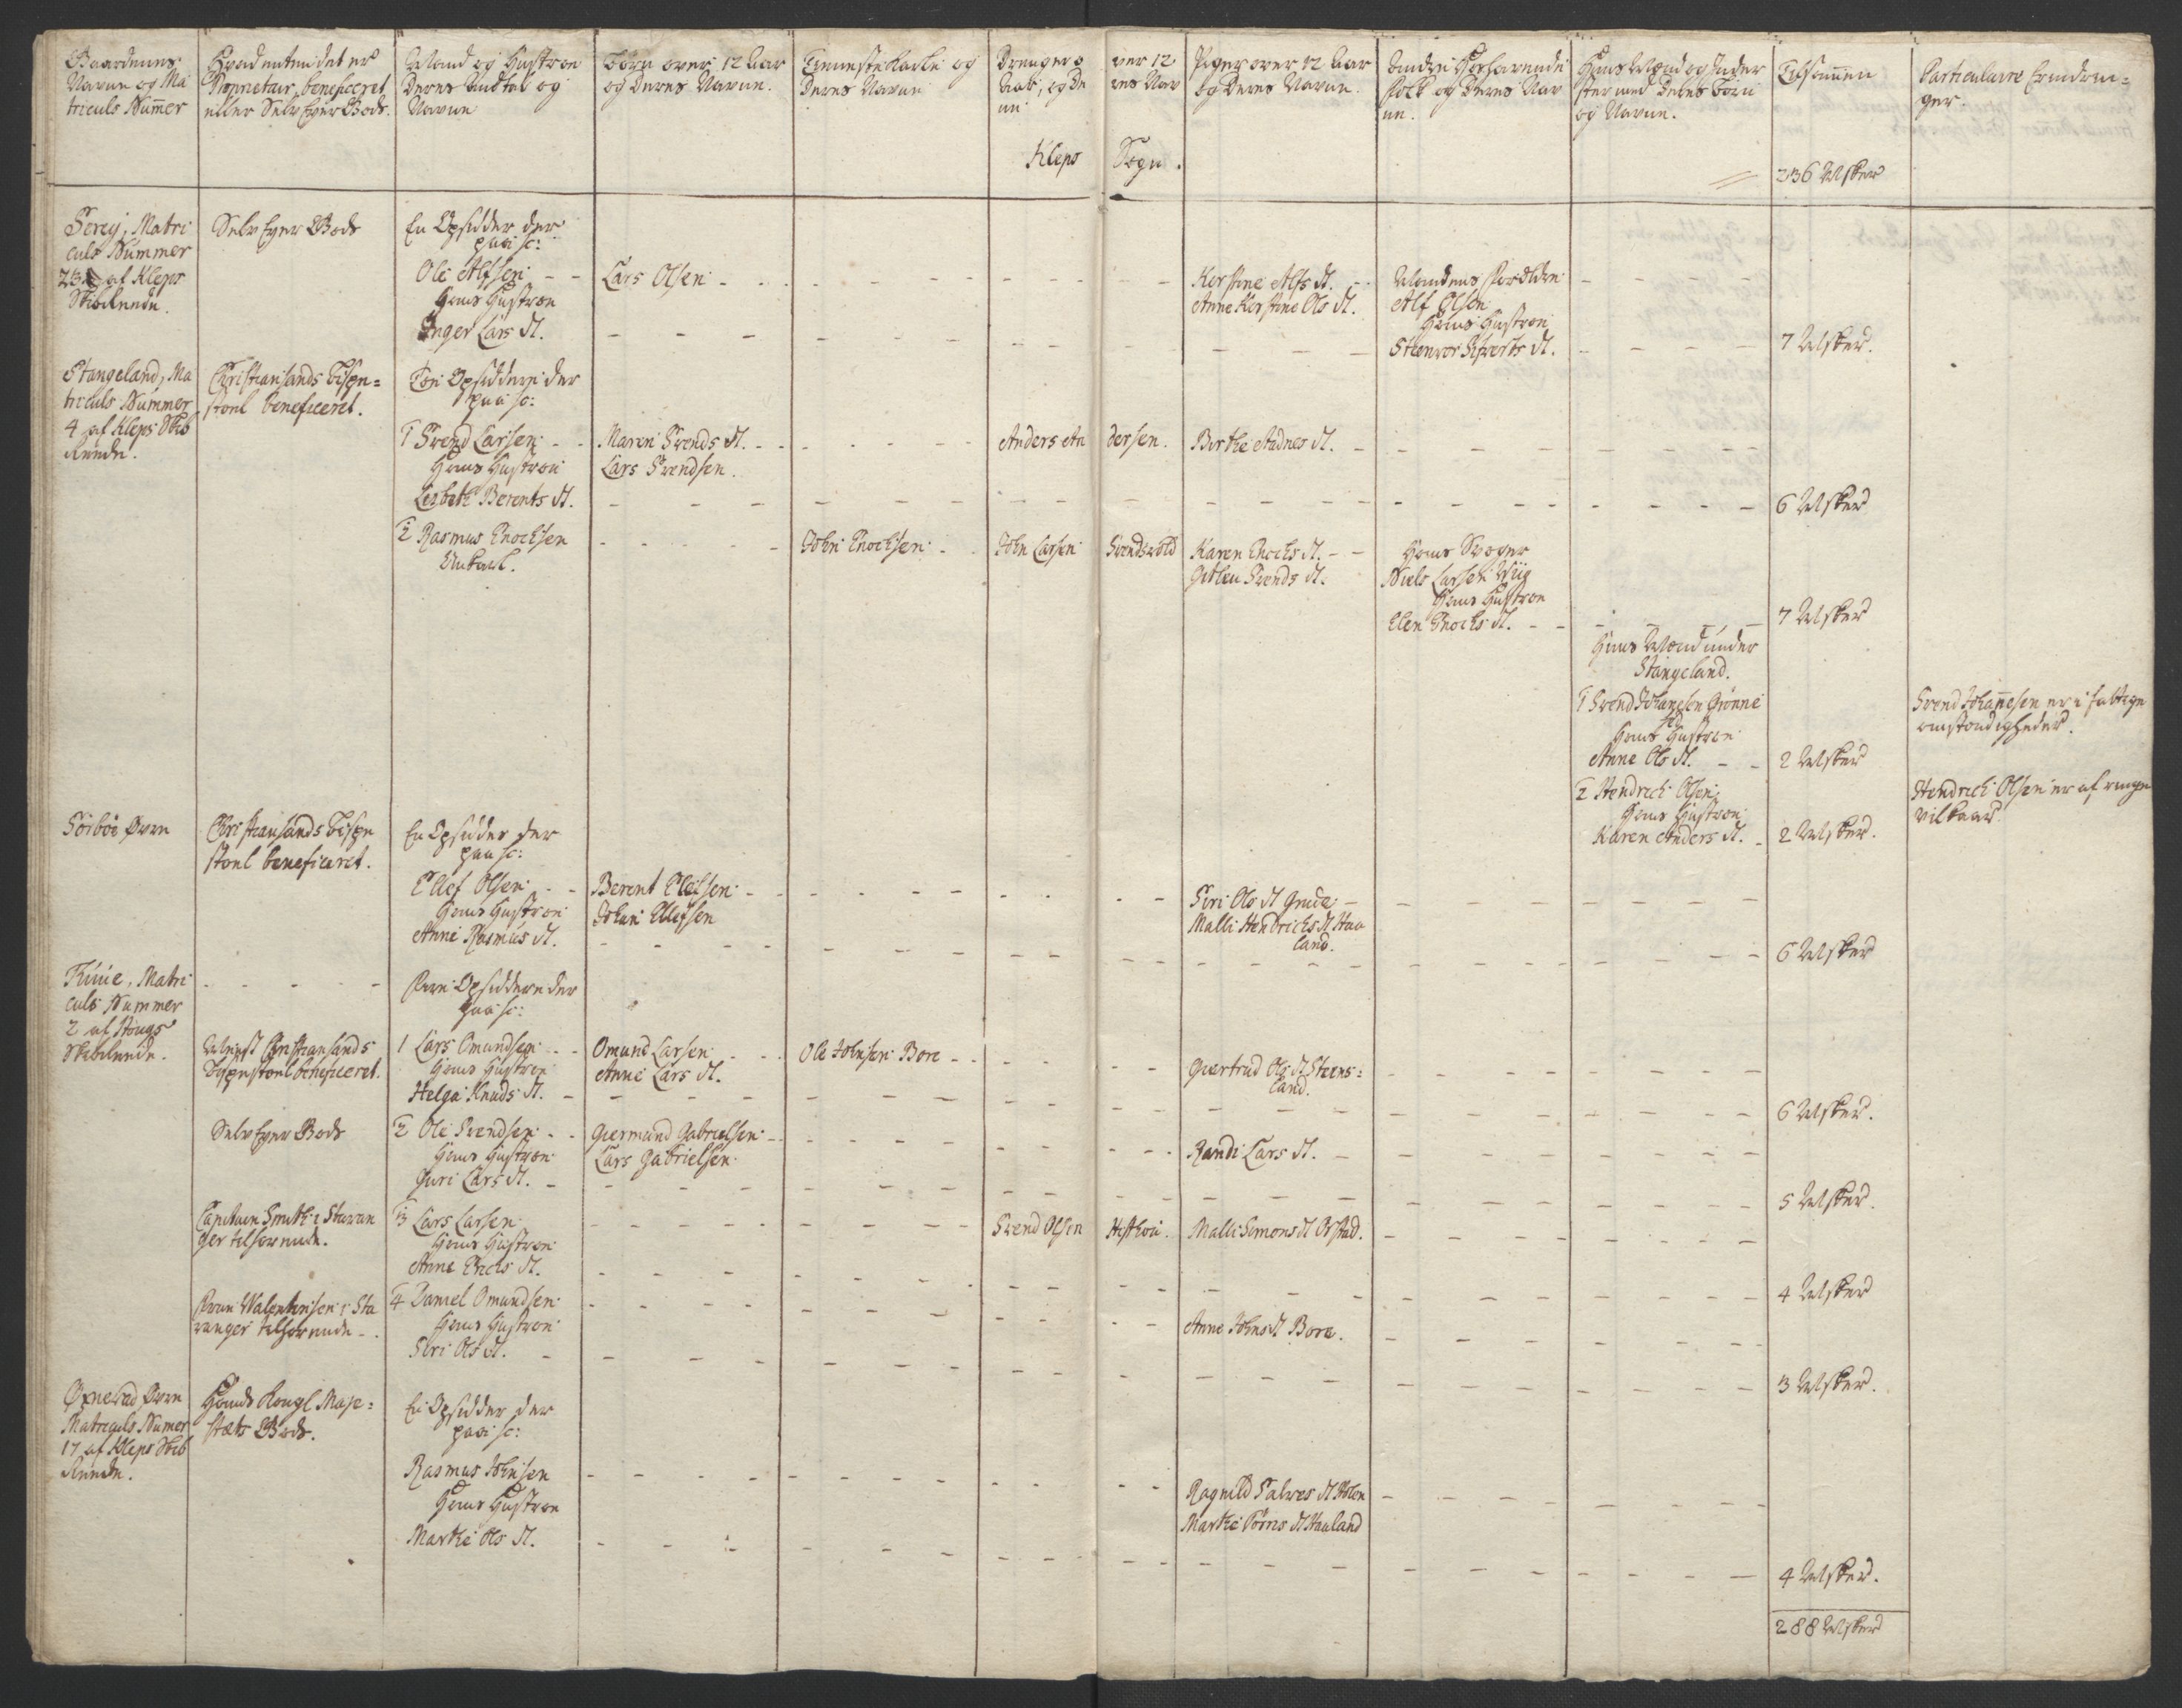 Gaardenes
Navne og Ma
triculs Nummer
Hvad enten det er
Proprietair, beneficeret
eller Selv Eyer Gods.
Mand og Hustroe
Deres Andtal og
Navne
Børn over 12 Aar
og Deres Navne.
Tieneste Karle og
Deres Navne
Drenge over 12
Aar, og Deres Nav
ne
Piger over 12 Aar
og Deres Navne.
Andre
Folk og Deres Nav
ne.
Huus Mænd og Inder
ster med Deres Børn
og Navne.
Tilsammen
Particulaire Erindrin=
ger.
Kleps Sogn.
236 Msker
Serej, Matri
culs Nummer
23 af Kleps
Skibreede.
Selv Eyer Gods
En Opsidder der
paa sc:
Ole Alfsen
Hans Hustroe
Inger Lars D.
Lars Olsen
Kerstine Alfs D.
Anne Kerstine Ols D.
Mandens Forældre
Alf Olsen
Hans Hustroe
Steenvor Sifverts D.
7 Msker.
Stangeland, Ma
triculs Nummer
4 af Kleps Skib
Reede.
Christiansands Bispe=
stoel beneficeret.
Toe Opsiddere der
paa sc:
1 Svend Larsen
Hans Hustroe
Lisbeth Berents D.
Maren Svends D.
Lars Svendsen.
Anders Andersen.
Birthe Aadnes D.
6 Msker
2 Rasmus Enochsen
Unkarl.
John Enochsen
John Larsen Svendsvold
Karen Enochs D.
Gitlen Svends D.
Hans Svoger
Niels Larsen Wiig
Hans Hustroe
Elen Enochs D.
7 Msker
Huus Mænd under
Stangeland.
1 Svend Johannesen Grønne
Hans Hustroe
Anne Ols D.
2 Msker
Svend Johannesen er i fattige
omstændigheder.
2 Hendrich Olsen
Hans Hustroe
Karen Anders D.
2 Msker.
Hendrich Olsen er af ringe
vilkaar.
Sörböe Øvre
Christiansands Bispe
stoel beneficeret.
En Opsidder der
paa sc:
Ellef Olsen
Hans Hustroe
Anne Rasmus D.
Berent Ellefsen
Johan Ellefsen
Siri Ols D Grude
Malli Hendrichs D Haa
land.
6 Msker
Tiuie, Matri
culs Nummer
2 af Hougs
Skibreede.
Fire Opsiddere der
paa sc:
Meest Christiansands
Bispestoel beneficeret.
1 Lars Omundsen
Hans Hustroe
Helga Knuds D.
Omund Larsen
Anne Lars D.
Ole Johnsen Bore
Giertrud Ols D Steens=
land.
6 Msker.
Selv Eyer Gods
2 Ole Svendsen
Hans Hustroe
Guri Lars D.
Giermund Gabrielsen
Lars Gabrielsen
Randi Lars D.
5 Msker.
Capitain Smith i Stavan
ger tilhørende.
3 Lars Larsen
Hans Hustroe
Anne Erichs D.
Svend Olsen
Malli Simons D Orstad.
4 Msker
Frue Valentinsen i Sta
vanger tilhørende
4 Daniel Omundsen
Hans Hustroe
Siri Ols D.
Anne Johns D Bore.
3 Msker.
Øxnevad Øvre
Matriculs Numer
17 af Kleps Skib
Reede.
Hands Kongl Maje=
stæts Gods.
En Opsidder der
paa sc:
Rasmus Johnsen
Hans Hustroe
Marthe Ols D.
Ragnild Salves D Holen
Marthe Törres D Hauland
4 Msker.
288 Msker